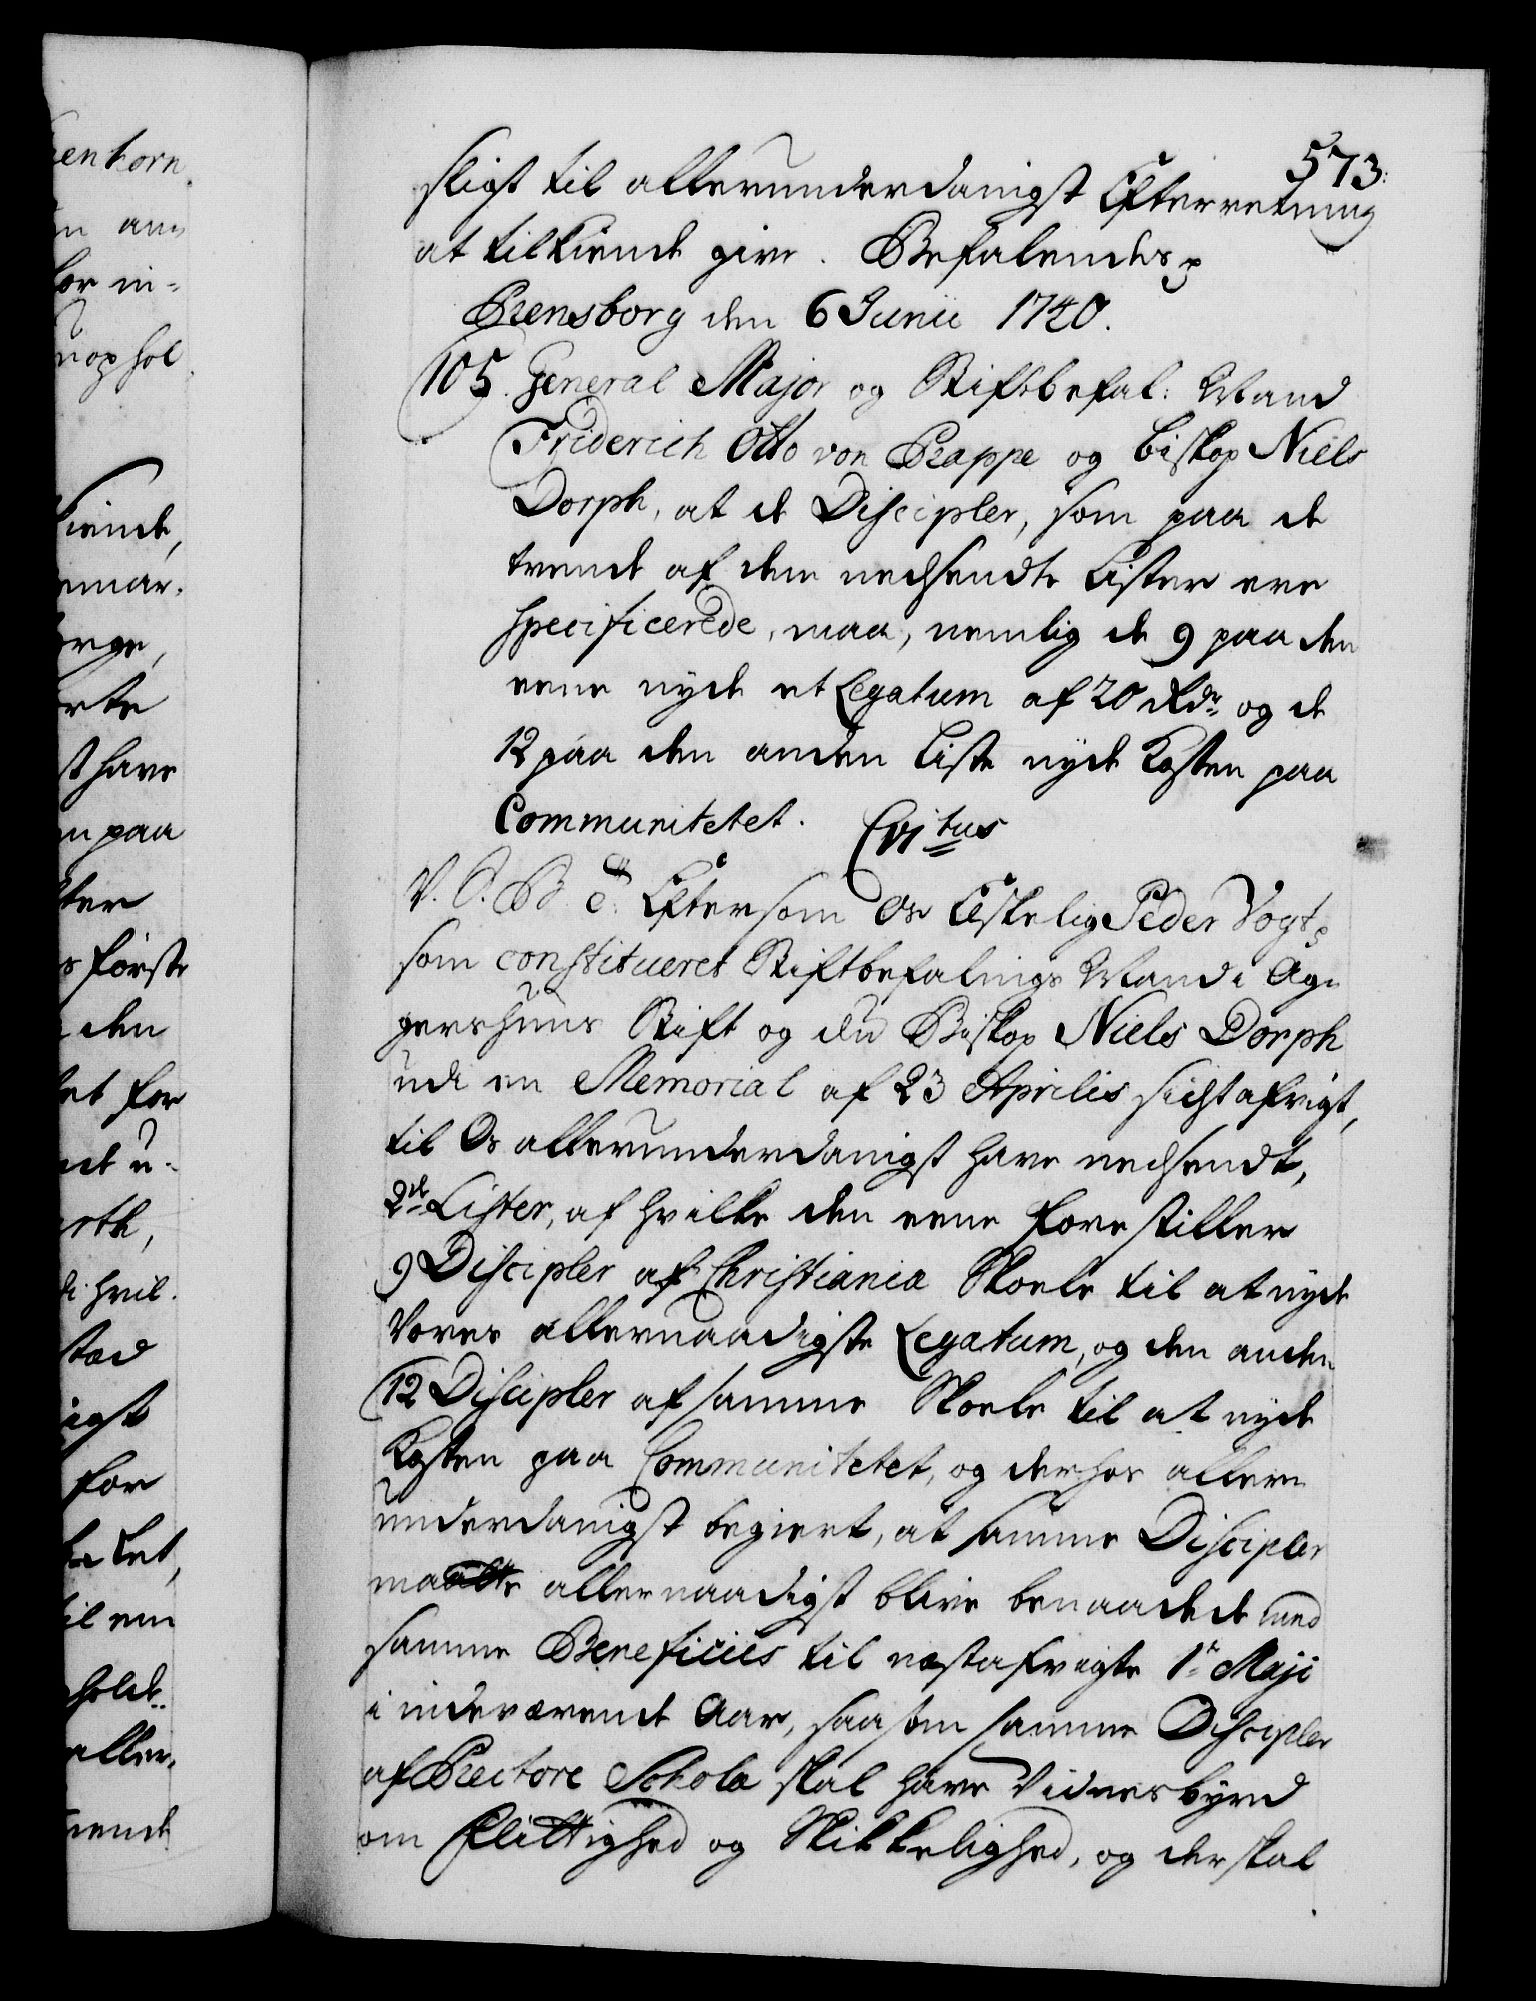 573.
sligt til allerunderdanigst Efterretning
at tilkiende give. Befalendes ꝑ
Rensborg den 6 Junii 1740.
105. General Major og Stiftsbefal: Mand
Friderich Otto von Rappe og Biskop Niels
Dorph, at de Discipler, som paa de
tvende af dem nedsendte Lister ere
specificerede, maa, nemlig de 9 paa den
eene nyde et Legatum af 20 Rdr og de
12 paa den anden Liste nyde Kosten paa
Communitetet. Cvitus
V. S. B. &. Eftersom Os Elskelig Peder Vogt,
som constitueret Stiftbefalings Mand i Ag-
gershuus Stift og du Biskop Niels Dorph
udi en Memorial af 23 Aprilis sidstafvigt,
til Os allerunderdanigst have nedsendt,
2de Lister, af hvilke den eene forestiller
9 Discipler af Christiania Skoele til at nyde
Vores allernaadigste Legatum, og den anden
12 Discipler af samme Skoele til at nyde
Kosten paa Communitetet, og derhos aller-
underdanigst begiert, at samme Discipler
maatte allernaadigst blive benaadede med
samme Beneficiis til næstafvigte 1te Maji
i indeværende Aar, saasom samme Discipler
af Rectore Schola skal have Vidnesbyrd
om Flittighed og Skikkelighed, og der skal
enkorn.
n an-
for in-
ophol
kiende,
mar-
orge,
rte
st have
n paa
ter
s første
den
et for
de u-
rth,
i hvil-
stæd
igst
for
ket,
til em
holde
aller-
ende